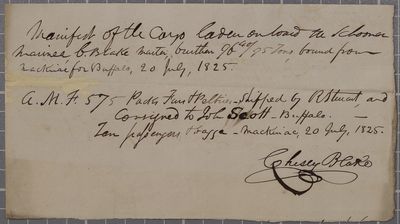 Manifest of the Cargo laden on board the Schooner
Mariner C. Blake master, burthen 96 40/95 Tons, bound from
Mackinac for Buffalo, 20 July, 1825.
A.M.F. 575 Packs Furs & Peltries - Shipped by R Stuart, and
Consigned to John Scott - Buffalo. -
Ten passengers Bagge - Mackinac, 20 July, 1825.
Chesley Blake